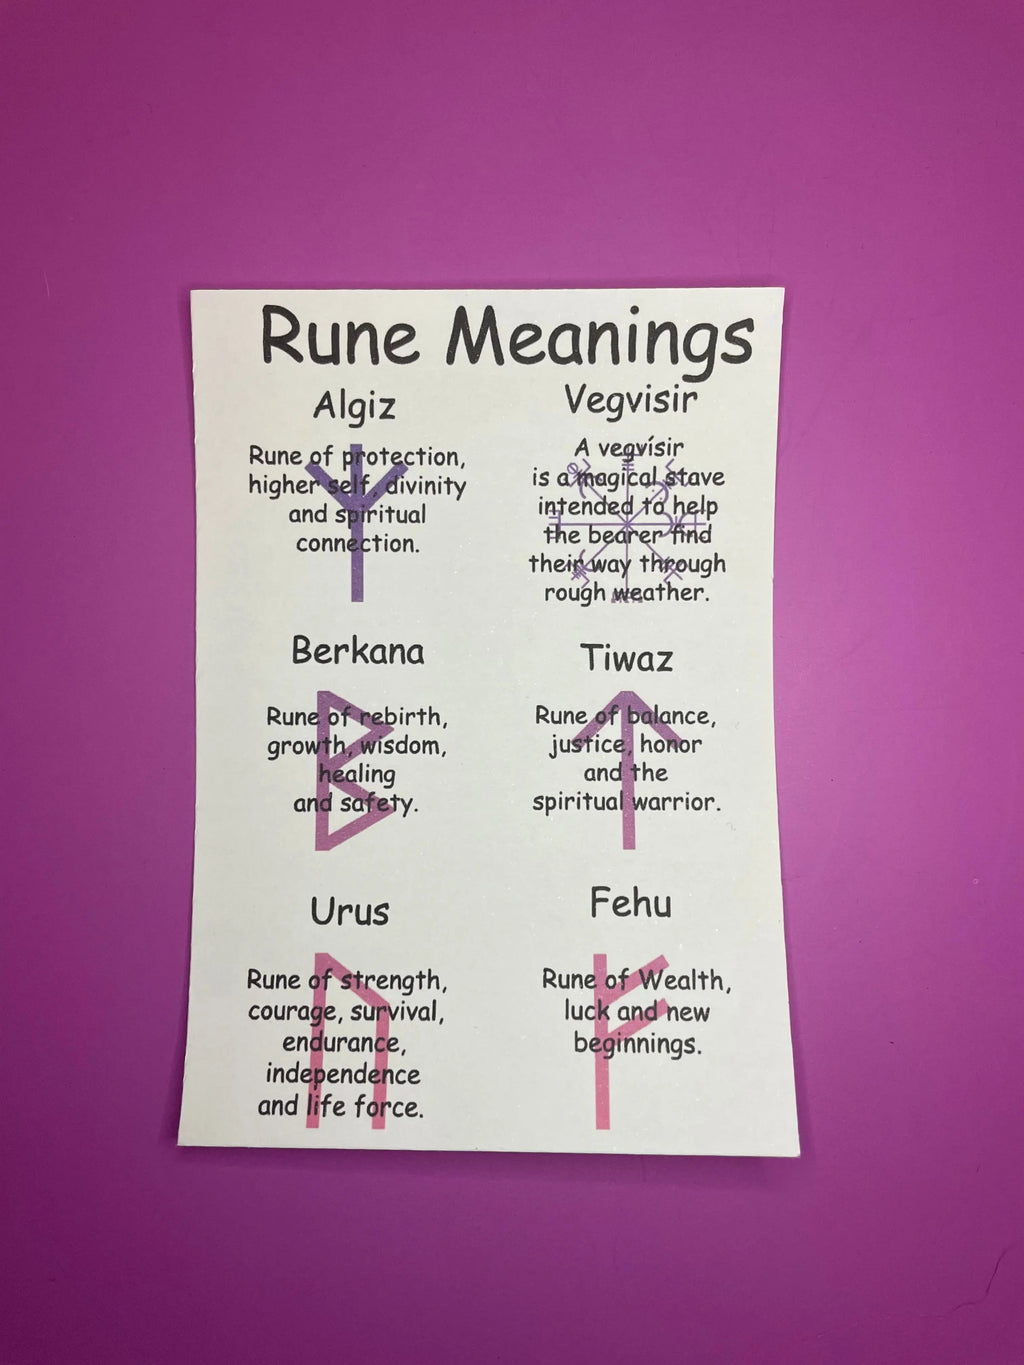 Rune Meanings
Algiz
Rune of protection,
higher self, divinity
and spiritual
connection.
Vegvisir
A vegvísir
is a magical stave
intended to help
the bearer find
their way through
rough weather.
Berkana
Rune of rebirth,
growth, wisdom,
healing
and safety.
Tiwaz
Rune of balance,
justice, honor
and the
spiritual warrior.
Urus
Rune of strength,
courage, survival,
endurance,
independence
and life force.
Fehu
Rune of Wealth,
luck and new
beginnings.